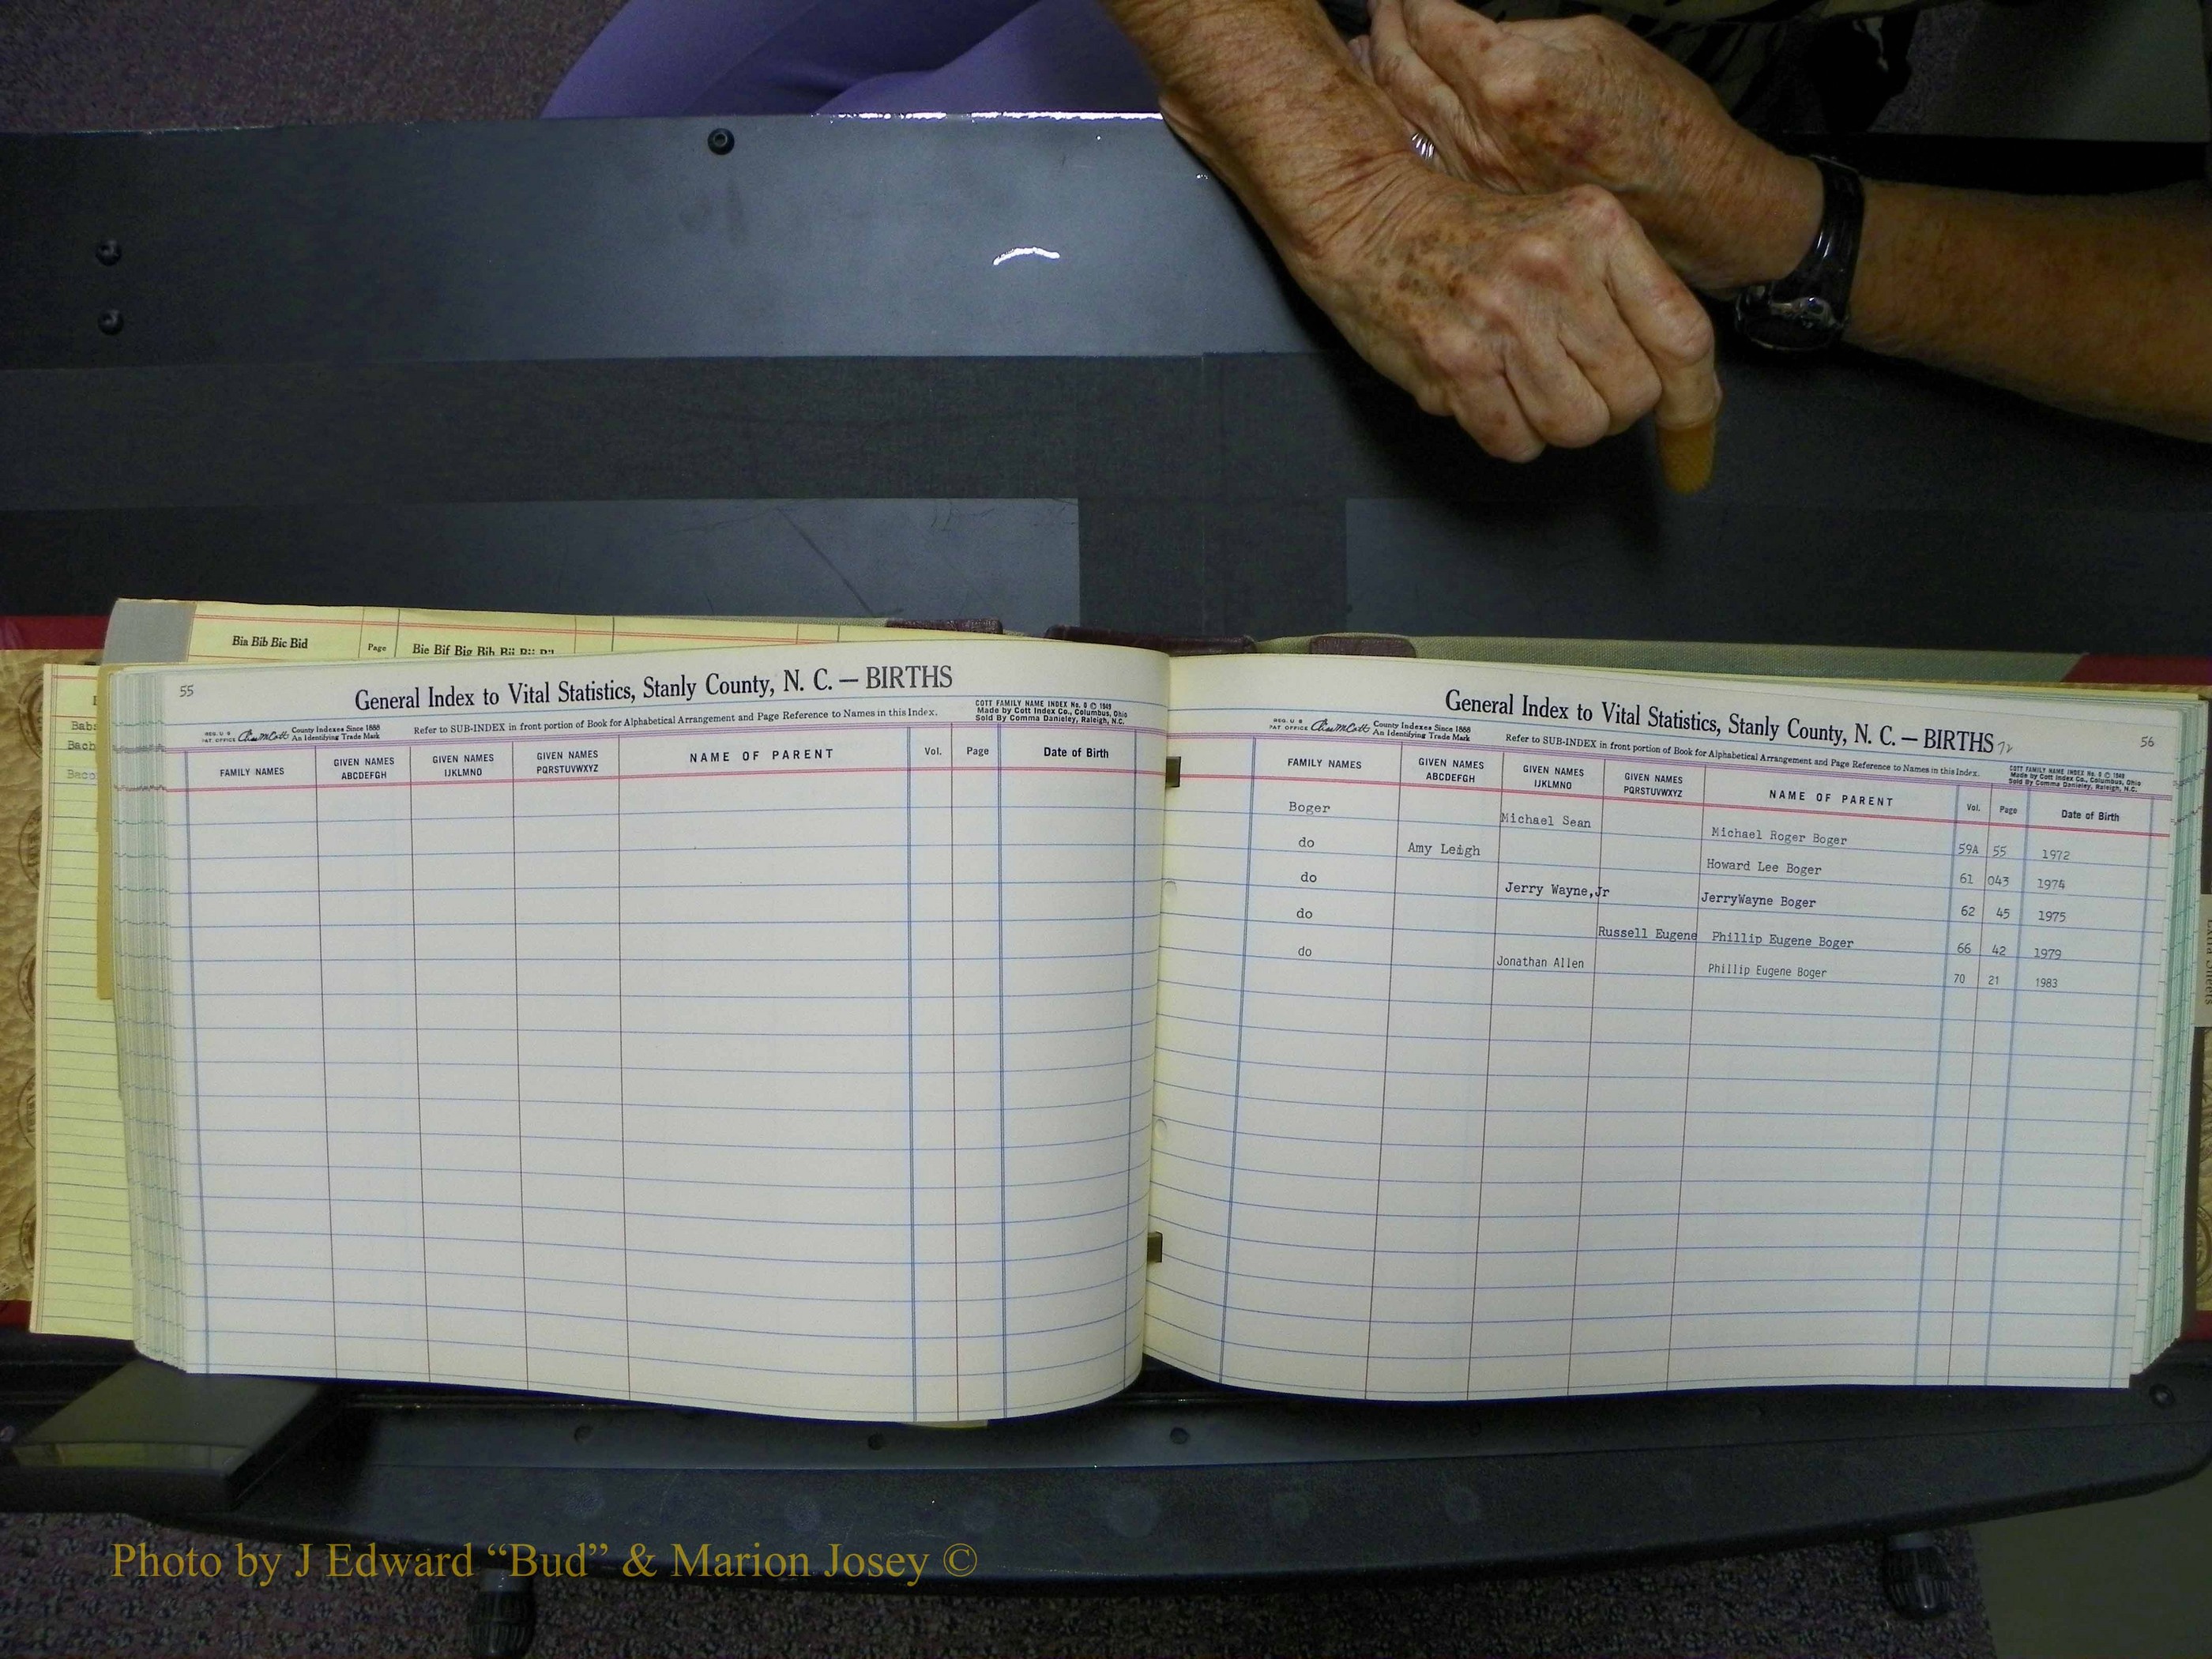 Bia Bib Bic Bid Page Bie Bif Big Bih Bii Bij
Bacb
Baco
55
General Index to Vital Statistics, Stanly County, N. C. — BIRTHS
REG. U S PAT. OFFICE County Indexes Since 1888 An Identifying Trade Mark
Refer to SUB-INDEX in front portion of Book for Alphabetical Arrangement and Page Reference to Names in this Index.
COTT FAMILY NAME INDEX No. 8 © 1949
Made by Cott Index Co., Columbus, Ohio
Sold By Comma Danieley, Raleigh, N.C.
FAMILY NAMES GIVEN NAMES ABCDEFGH GIVEN NAMES IJKLMNO GIVEN NAMES PQRSTUVWXYZ NAME OF PARENT Vol. Page Date of Birth
General Index to Vital Statistics, Stanly County, N. C. — BIRTHS 72
56
REG. U S PAT. OFFICE County Indexes Since 1888 An Identifying Trade Mark
Refer to SUB-INDEX in front portion of Book for Alphabetical Arrangement and Page Reference to Names in this Index.
COTT FAMILY NAME INDEX No. 8 © 1949
Made by Cott Index Co., Columbus, Ohio
Sold By Comma Danieley, Raleigh, N.C.
FAMILY NAMES GIVEN NAMES ABCDEFGH GIVEN NAMES IJKLMNO GIVEN NAMES PQRSTUVWXYZ NAME OF PARENT Vol. Page Date of Birth
Boger Michael Sean Michael Roger Boger 59A 55 1972
do Amy Leigh Howard Lee Boger 61 043 1974
do Jerry Wayne,Jr JerryWayne Boger 62 45 1975
do Russell Eugene Phillip Eugene Boger 66 42 1979
do Jonathan Allen Phillip Eugene Boger 70 21 1983
Extra Sheets
Photo by J Edward “Bud” & Marion Josey ©